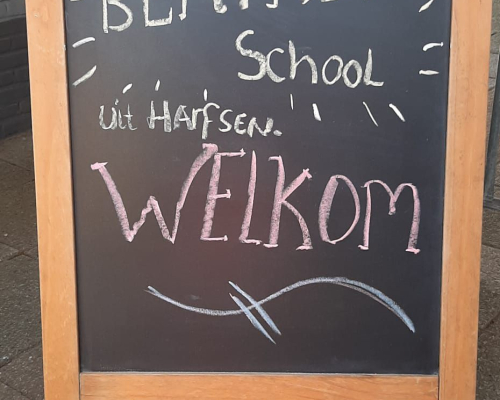 School
uit HARFSEN.
WELKOM